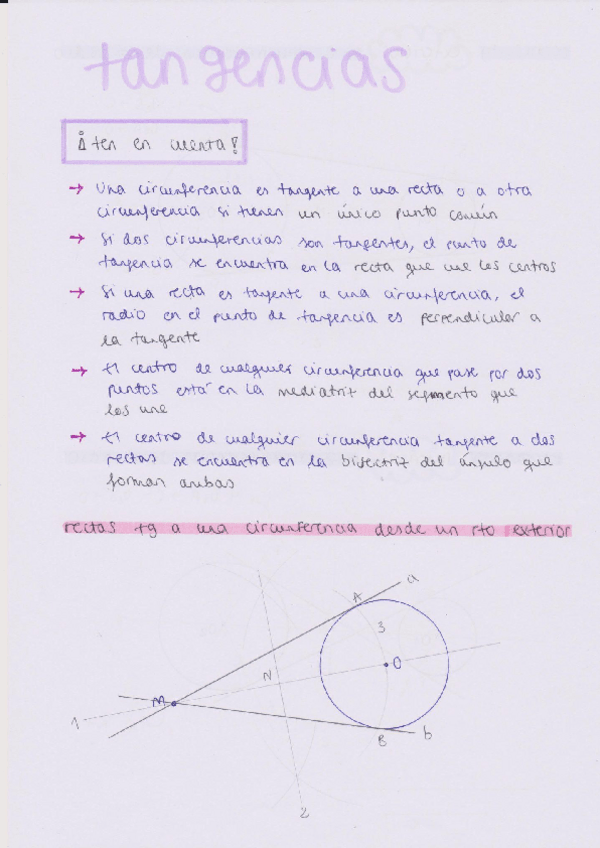 tangencias
¡ten en cuenta!
→ Una circunferencia es tangente a una recta o a otra
circunferencia si tienen un único punto común
→ Si dos circunferencias son tangentes, el punto de
tangencia se encuentra en la recta que une los centros
→ Si una recta es tangente a una circunferencia, el
radio en el punto de tangencia es perpendicular a
la tangente
→ El centro de cualquier circunferencia que pase por dos
puntos está en la mediatriz del segmento que
los une
→ El centro de cualquier circunferencia tangente a dos
rectas se encuentra en la bisectriz del ángulo que
forman ambas
rectas tg a una circunferencia desde un pto exterior
a
A
3
O
N
M
1
b
B
2